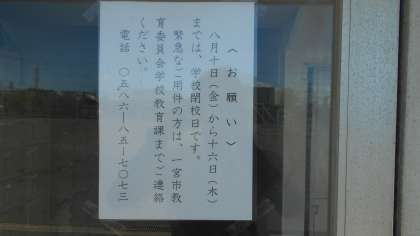 〈お願い〉
八月十日(金)から十六日(木)
までは、学校閉校日です。
緊急なご用件の方は、一宮市教
育委員会学校教育課までご連絡
ください。
電話 〇五八六―八五―七〇七三